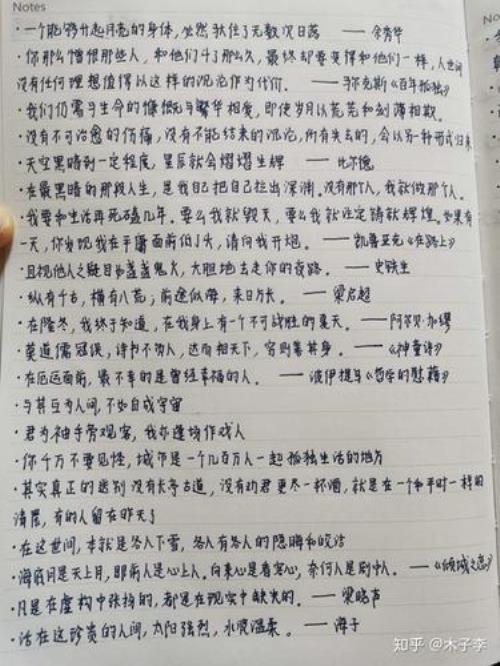 Notes
·一个能够升起月亮的身体,必然驮住了无数次日落 ——余秀华
·你那么憎恨那些人,和他们斗了那么久,最终却要变得和他们一样,人世间
没有任何理想值得以这样的沉沦作为代价。——马尔克斯《百年孤独》
·我们仍需与生命的慷慨与繁华相爱,即使岁月以荒芜和刻薄相欺。
·没有不可治愈的伤痛,没有不能结束的沉沦,所有失去的,会以另一种形式归来
·天空黑暗到一定程度,星辰就会熠熠生辉 ——比尔德
·在最黑暗的那段人生,是我自己把自己拉出深渊。没有那个人,我就做那个人。
·我要和生活再死磕几年。要么我就毁灭,要么我就注定铸就辉煌。如果有
一天,你发现我在平庸面前低了头,请向我开炮。——凯鲁亚克《在路上》
·且视他人之疑目如盏盏鬼火,大胆地去走你的夜路。——史铁生
·纵有千古,横有八荒;前途似海,来日方长。——梁启超
·在隆冬,我终于知道,在我身上有一个不可战胜的夏天。——阿尔贝·加缪
·莫道儒冠误,诗书不负人,达而相天下,穷则善其身。——《神童诗》
·在厄运面前,最不幸的是曾经幸福的人。——波伊提乌《哲学的慰藉》
·与其互为人间,不如自成宇宙
·君为袖手旁观客,我亦逢场作戏人
·你千万不要见怪,城市是一个几百万人一起孤独生活的地方
·其实真正的送别没有长亭古道,没有劝君更尽一杯酒,就是在一个和平时一样的
清晨,有的人留在昨天了
·在这世间,本就是各人下雪,各人有各人的隐晦和皎洁
·海底月是天上月,眼前人是心上人。向来心是看客心,奈何人是剧中人。——《倾城之恋》
·凡是在虚构中张扬的,都是在现实中缺失的。——梁晓声
·活在这珍贵的人间,太阳强烈,水波温柔。——海子
知乎 @木子李